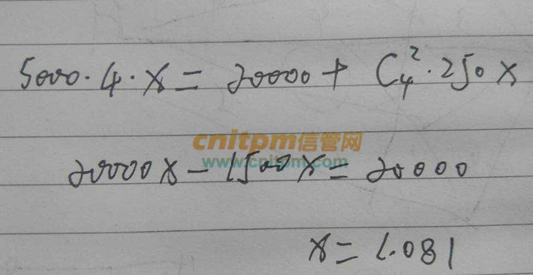 5000·4·x = 20000 + C₄²·250x
cnitpm信管网
www.cnitpm.com
20000x - 1500x = 20000
x = 1.081